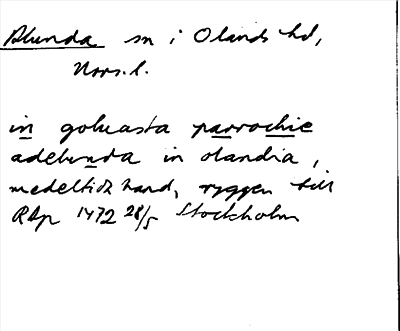 Alunda sn i Olands hd,
Nors. l.
in goluasta parrochie
adelunda in olandia,
medeltida hand, ryggen till
RAp 1472 28/5 Stockholm